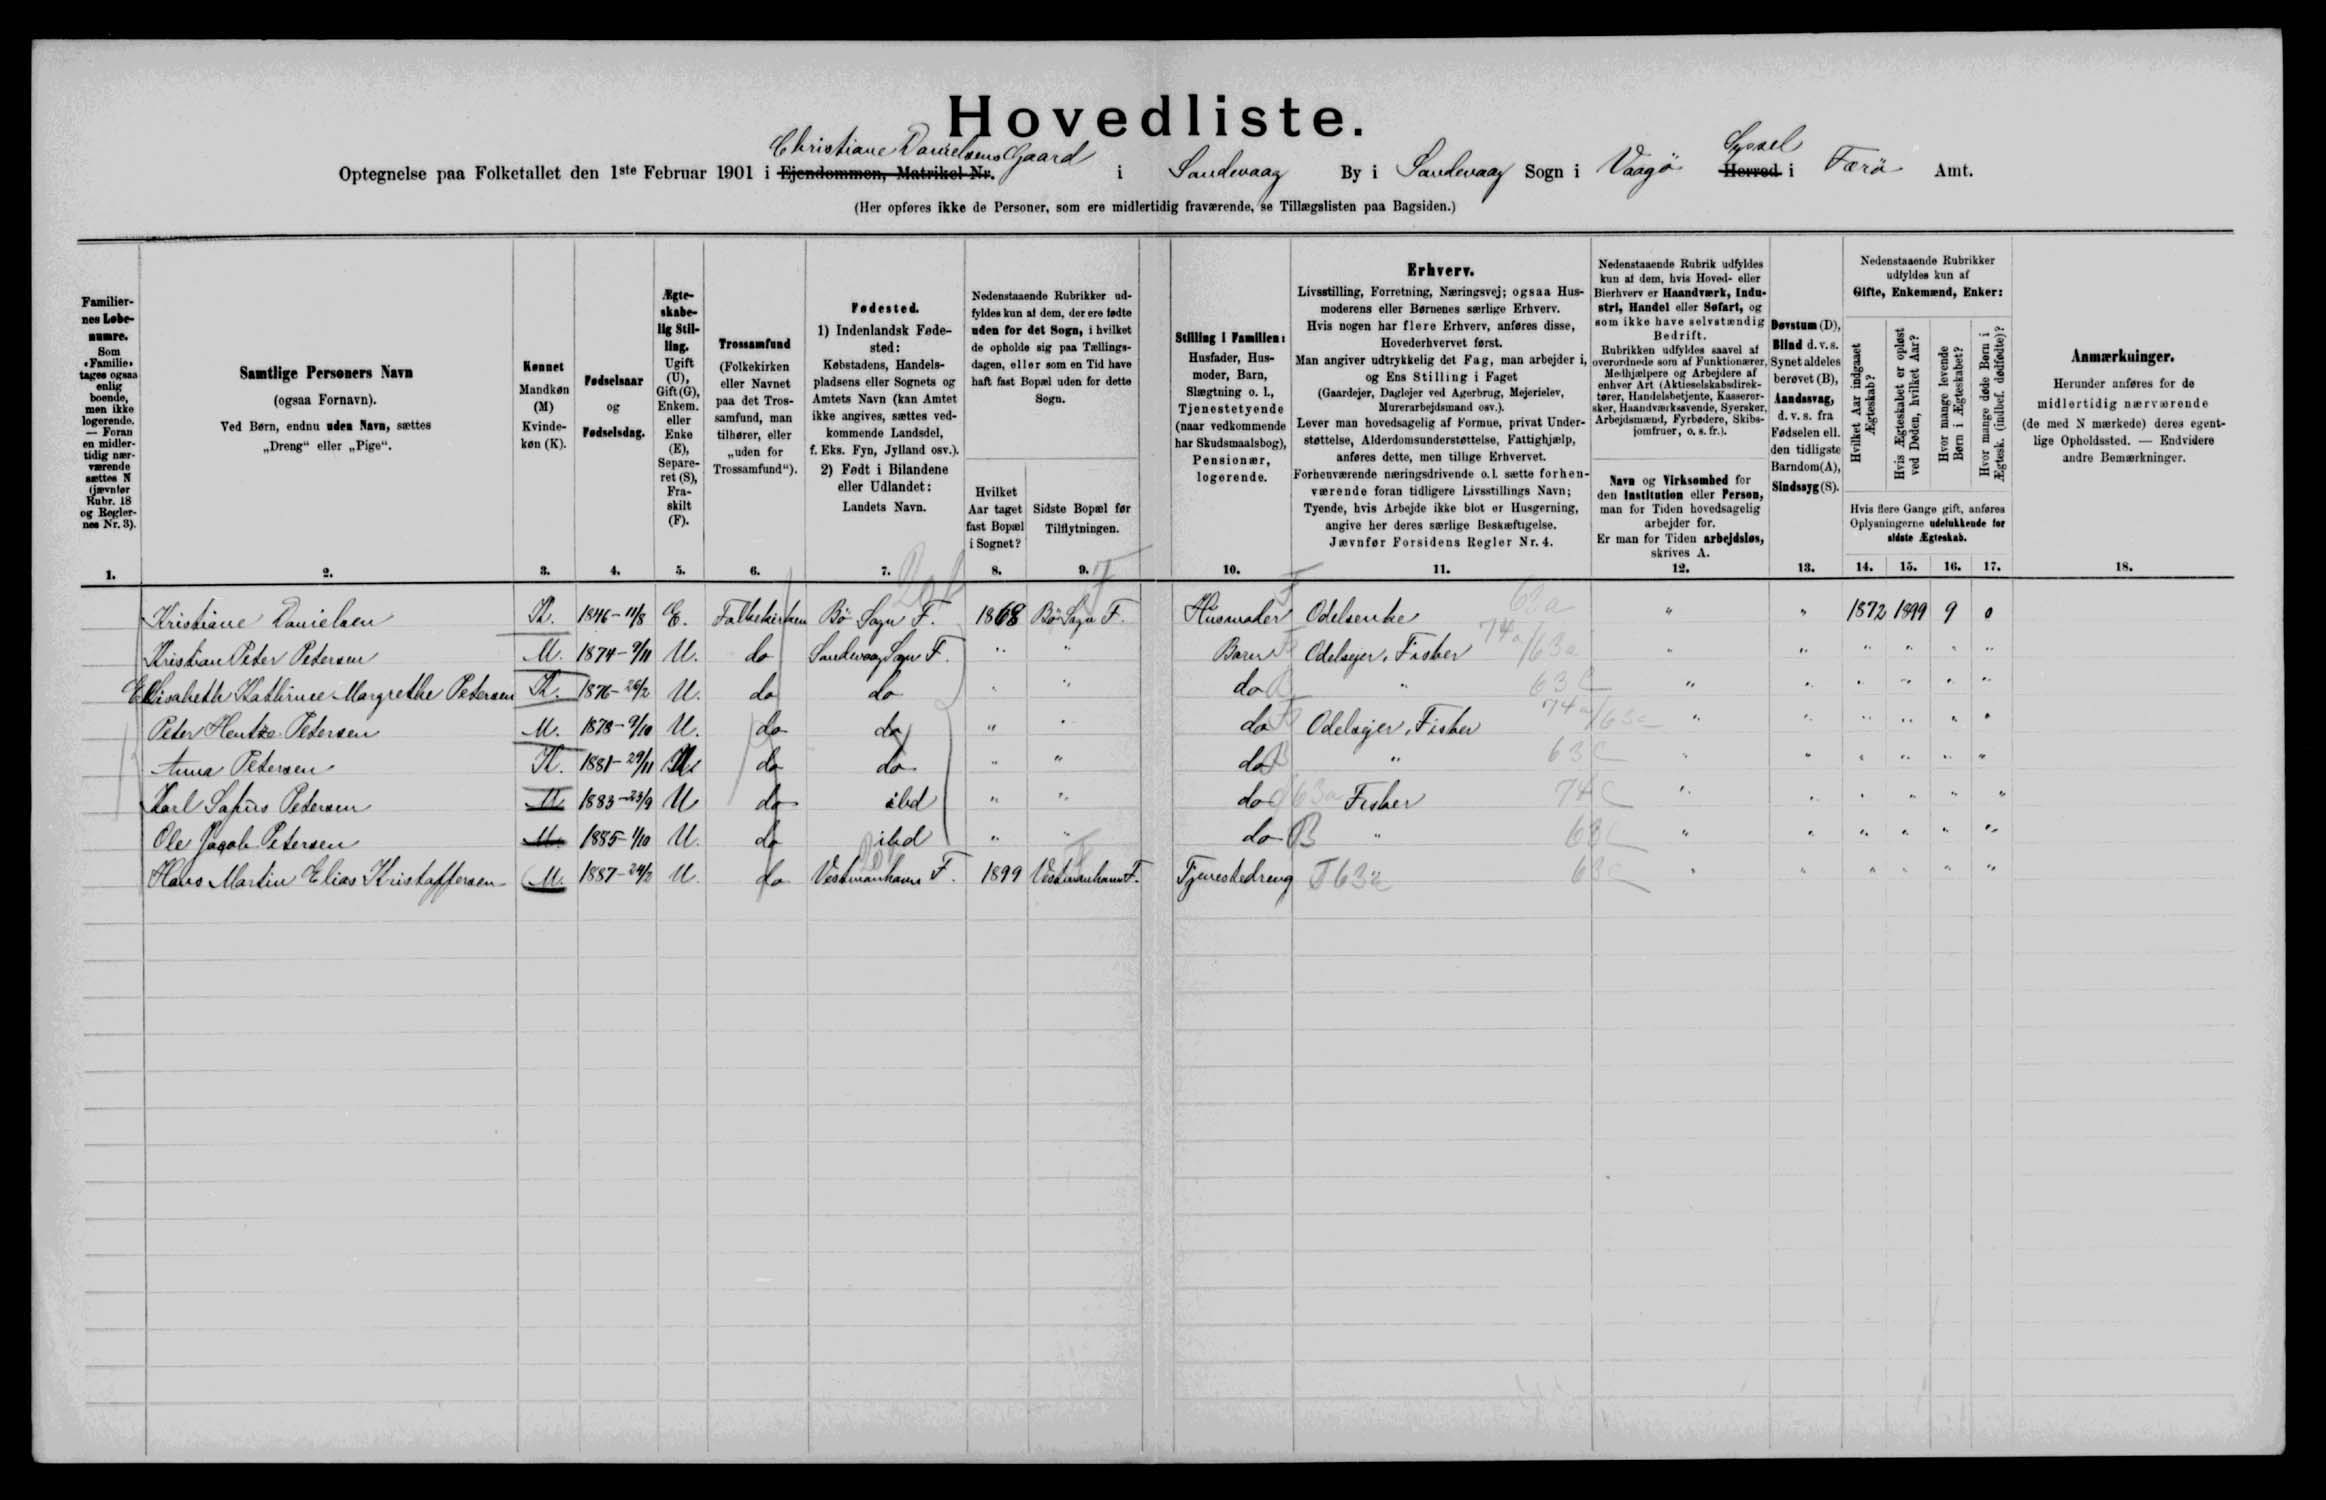 Hovedliste.
Christiane Danielsens Gaard Syssel
Optegnelse paa Folketallet den 1ste Februar 1901 i Ejendommen, Matrikel Nr. i Sandevaag By i Sandevaag Sogn i Vaagø Herred i Færø Amt.
(Her opføres ikke de Personer, som ere midlertidig fraværende, se Tillægslisten paa Bagsiden.)
Familier-
nes Løbe-
numre.
Som
»Familie»
tages ogsaa
enlig
boende,
men ikke
logerende.
— Foran
en midler-
tidig nær-
værende
sættes N
(jævnfør
Rubr. 18
og Regler-
nes Nr. 3).
1.
Samtlige Personers Navn
(ogsaa Fornavn).
Ved Børn, endnu uden Navn, sættes
„Dreng“ eller „Pige“.
2.
Kønnet
Mandkøn
(M)
Kvinde-
køn (K).
3.
Fødselsaar
og
Fødselsdag.
4.
Ægte-
skabe-
lig Stil-
ling.
Ugift
(U),
Gift (G),
Enkem.
eller
Enke
(E),
Separe-
ret (S),
Fra-
skilt
(F).
5.
Trossamfund
(Folkekirken
eller Navnet
paa det Tros-
samfund, man
tilhører, eller
„uden for
Trossamfund“).
6.
Fødested.
1) Indenlandsk Føde-
sted:
Købstadens, Handels-
pladsens eller Sognets og
Amtets Navn (kan Amtet
ikke angives, sættes ved-
kommende Landsdel,
f. Eks. Fyn, Jylland osv.).
2) Født i Bilandene
eller Udlandet:
Landets Navn.
7.
Nedenstaaende Rubrikker ud-
fyldes kun af dem, der ere fødte
uden for det Sogn, i hvilket
de opholde sig paa Tællings-
dagen, eller som en Tid have
haft fast Bopæl uden for dette
Sogn.
Hvilket
Aar taget
fast Bopæl
i Sognet?
8.
Sidste Bopæl før
Tilflytningen.
9.
Stilling i Familien:
Husfader, Hus-
moder, Barn,
Slægtning o. l.,
Tjenestetyende
(naar vedkommende
har Skudsmaalsbog),
Pensionær,
logerende.
10.
Erhverv.
Livsstilling, Forretning, Næringsvej; ogsaa Hus-
moderens eller Børnenes særlige Erhverv.
Hvis nogen har flere Erhverv, anføres disse,
Hovederhvervet først.
Man angiver udtrykkelig det Fag, man arbejder i,
og Ens Stilling i Faget
(Gaardejer, Daglejer ved Agerbrug, Mejerielev,
Murerarbejdsmand osv.).
Lever man hovedsagelig af Formue, privat Under-
støttelse, Alderdomsunderstøttelse, Fattighjælp,
anføres dette, men tillige Erhvervet.
Forhenværende næringsdrivende o. l. sætte forhen-
værende foran tidligere Livsstillings Navn;
Tyende, hvis Arbejde ikke blot er Husgerning,
angive her deres særlige Beskæftigelse.
Jævnfør Forsidens Regler Nr. 4.
11.
Nedenstaaende Rubrik udfyldes
kun af dem, hvis Hoved- eller
Bierhverv er Haandværk, Indu-
stri, Handel eller Søfart, og
som ikke have selvstændig
Bedrift.
Rubrikken udfyldes saavel af
overordnede som af Funktionærer,
Medhjælpere og Arbejdere af
enhver Art (Aktieselskabsdirek-
tører, Handelsbetjente, Kasserer-
sker, Haandværkssvende, Syersker,
Arbejdsmænd, Fyrbødere, Skibs-
jomfruer, o. s. fr.).
Navn og Virksomhed for
den Institution eller Person,
man for Tiden hovedsagelig
arbejder for.
Er man for Tiden arbejdsløs,
skrives A.
12.
Døvstum (D),
Blind d. v. s.
Synet aldeles
berøvet (B),
Aandssvag,
d. v. s. fra
Fødselen ell.
den tidligste
Barndom (A),
Sindssyg (S).
13.
Nedenstaaende Rubrikker
udfyldes kun af
Gifte, Enkemænd, Enker:
Hvilket Aar indgaaet
Ægteskab?
Hvis Ægteskabet er opløst
ved Døden, hvilket Aar?
Hvor mange levende
Børn i Ægteskabet?
Hvor mange døde Børn i
Ægtesk. (indbef. dødfødte)?
Hvis flere Gange gift, anføres
Oplysningerne udelukkende for
sidste Ægteskab.
14. 15. 16. 17.
Anmærkninger.
Herunder anføres for de
midlertidig nærværende
(de med N mærkede) deres egent-
lige Opholdssted. — Endvidere
andre Bemærkninger.
18.
Kristiane Danielsen K. 1846-11/8 E. Folkekirken Bø Sogn F. 1868 Bø Sogn F. Husmoder Odelsenke 62a " " 1872 1899 9 0
Kristian Peter Petersen M. 1874-9/11 U. do Sandevaag Sogn F. " " Barn Odelsejer, Fisker 74a/63a " " " " " "
Elisabeth Kathrine Margrethe Petersen K. 1876-26/2 U. do do " " do " 63c " " " " " "
Peter Hentze Petersen M. 1878-9/10 U. do do " " do Odelsejer, Fisker 74a/63a " " " " " "
Anna Petersen K. 1881-29/11 U do do " " do B " 63c " " " " " "
Karl Safus Petersen M 1883-23/9 U do ibd " " do 63a Fisker 74c " " " " " "
Ole Jacob Petersen M. 1885-1/10 U. do ibd " " do B " 63c " " " " " "
Hans Martin Elias Kristoffersen M. 1887-24/2 U. do Vestmanhavn F. 1899 Vestmanhavn F. Tjenestedreng T63a 63c " " " " " "